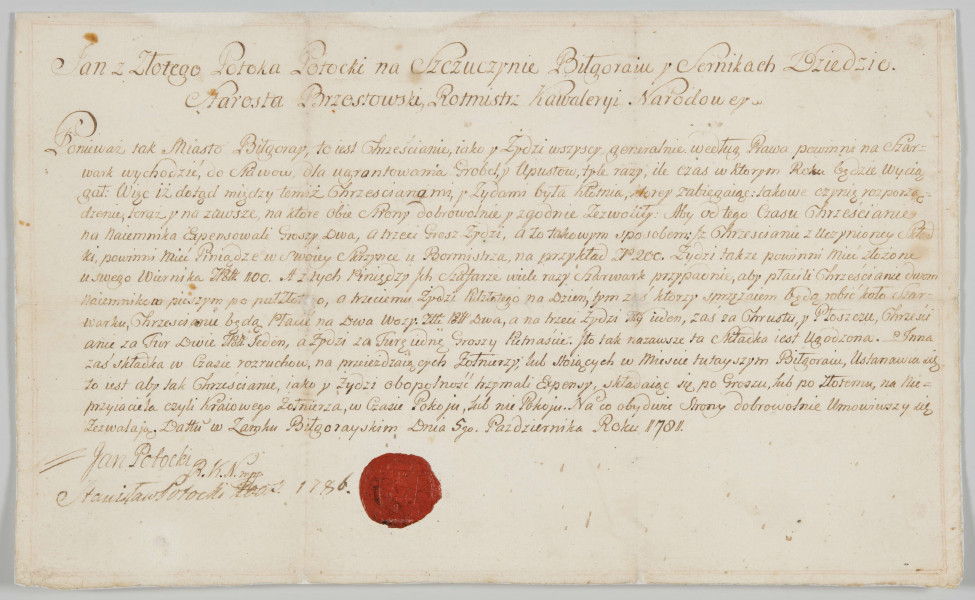 Jan z Złotego Potoka Potocki na Szczuczynie Biłgoraiu y Sernikach Dziedzic.
Starosta Brzestowski, Rotmistrz Kawaleryi Narodowey
Ponieważ tak Miasto Biłgoray, to iest Chrześcianie, iako y Żydzi wszyscy, generalnie według Prawa powinni na Szar-
wark wychodzić, do Stawow, dla ugrantowania Grobel, y Upustow, tyle razy, ile czas w ktorym Roku będzie Wycią
gał: Więc iż dotąd między temiż Chrzescianami, y Żydami była kłutnia, ktorey zabiegaiąc: takowe czynię rozporzą-
dzenie, teraz y na zawsze, na ktore obie Strony dobrowolnie y zgodnie Zezwoliły: Aby od tego Czasu Chrześcianie
na Naiemnika Expensowali Groszy Dwa, a trzeci Grosz Żydzi, a to takowym sposobem: iż Chrześcianie z Uczynioney Skład
ki, powinni Mieć Piniądze w Swoiey Skrzynce u Bormistrza, na przykład 200. Żydzi także powinni Mieć złożone
u swego Wiernika 100. A z tych Pieniędzy Szafarze wiele razy Szarwark przypadnie, aby płacili Chrześcianie dwom
Naiemnikom pieszym po puł a trzeciemu Żydzi Pułzłotego na Dzień, tym zaś ktorzy sprzężaiem będą robić koło Szar-
warku, Chrześcianie będą Płacić na Dwa Wozy Dwa, a na trzeci Żydzi ieden, zas za Chrustu, y Płoszczu, Chrześci
anie za Fur Dwie Jeden, a Żydzi za Furę iednę Groszy Pietnascie. Jto tak nazawsze ta Składka iest Ugodzona. Inna
zaś składka w Czasie rozruchow, na przeieżdzaiących Żołnierzy, lub stoiących w Miescie tutayszym Biłgoraiu, Ustanawia się
to iest aby tak Chrześcianie, iako y Żydzi obopolność trzymali Expensy, składaiąc się po Groszu, lub po złotemu, na Nie-
przyiaciela czyli Kraiowego Żołnierza, w Czasie Pokoju, lub nie Pokoju. Na co obydwie Strony dobrowolnie Umowiwszy się
Zezwalaią. Dattū w Zamku Biłgorayskim Dnia 5go. Pazdziernika Roku 1781.
Jan Potocki
R. K. N. mpp
Stanisław Potocki 1786.